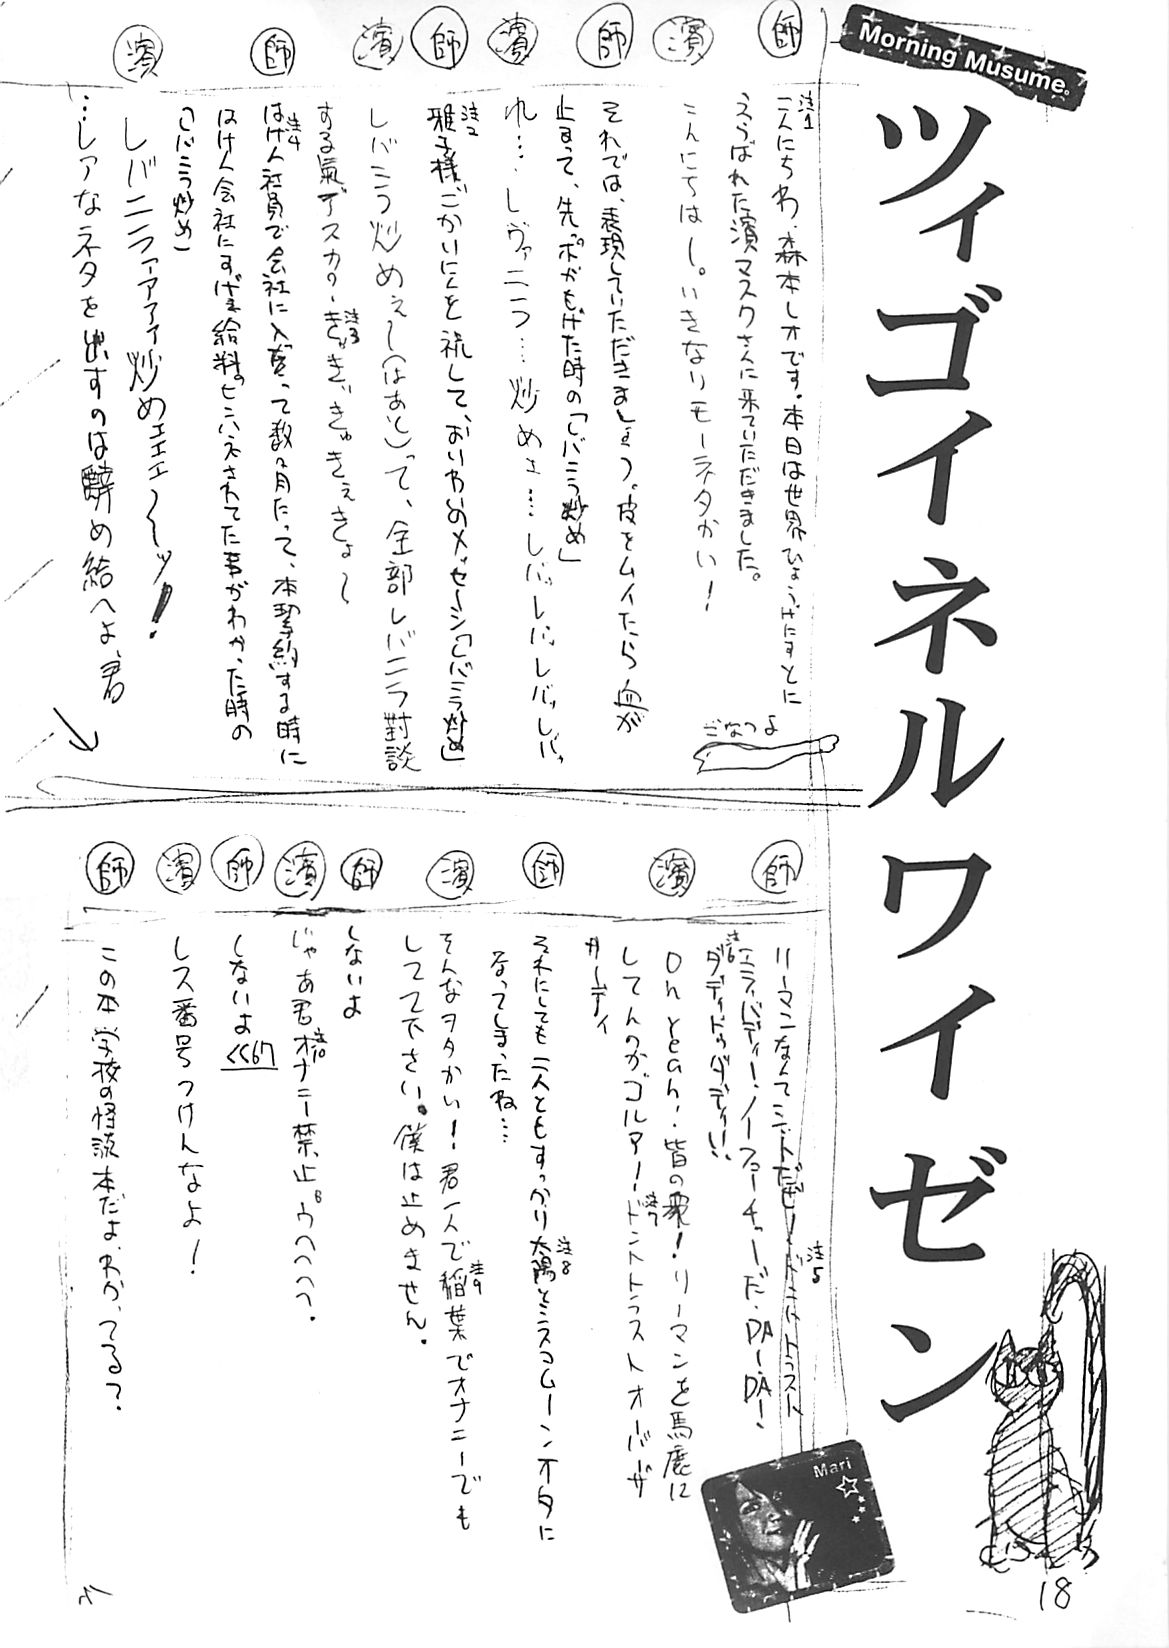 Morning Musume。
ツィゴイネルワイゼン
師 注1 こんにちわ、森本レオです。本日は世界ひょうげにすとに
えらばれた濱マスクさんに来ていただきました。
濱 こんにちはし。いきなりモーネタかい!
ごなつよ
師 それでは、表現していただきましょう。皮をムイたら血が
止まって、先ッポがもげた時の「レバニラ炒め」
濱 れ…、レヴァニラ…炒めェ…、レバッレバッレバッレバッ
師 注2 雅子様ごかいにんを祝して、おいわいのメッセージ「レバニラ炒め」
濱 レバニラ炒めぇ〜(はあと)って、全部レバニラ對談
する氣デスカッ 注3 きぃきゅきぇきょ〜
師 注4 はけん社員で会社に入って数ヶ月たって、本契約する時に
はけん会社にすげぇ給料のピンハネされてた事がわかった時の
「レバニラ炒め」
濱 レバニラァアァィ炒めェェェ〜〜ッ!
…レアなネタを出すのは辭め給へよ、君
師 リーマンなんてシットだぜ! 注5 ドントトラスト
エヴィバディー、ノーフューチャーだ、DA・DA!
注6 ダディドゥダディ!、
濱 Oh yeah、皆の衆!リーマンを馬鹿に
してんのかゴルアー! 注7 ドントトラストオーバーザ
サーティ
師 それにしても二人ともすっかり 注8 太陽とシスコムーンオタに
なってしまったね…
濱 そんなヲタかい!君一人で 注9 稲葉でオナニーでも
してて下さい。僕は止めません。
師 しないよ
濱 じゃあ君 注10 オナニー禁止。うへへへへ。
師 しないよ <<67
濱 レス番号つけんなよ!
師 この本、学校の怪談本だよ、わかってる?
Mari
18